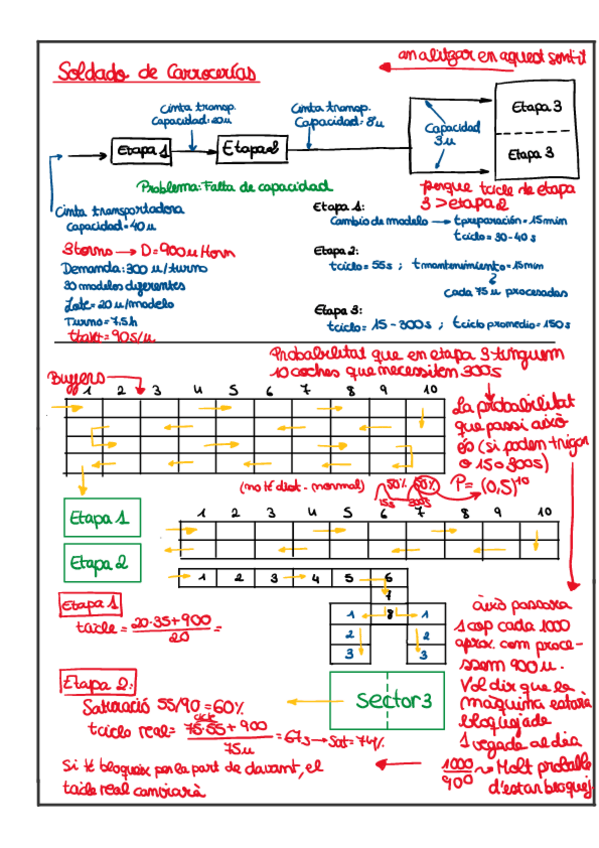 analitzar en aquest sentit
Soldado de Carrocerías
Cinta transp.
Capacidad: 20u
Cinta transp.
Capacidad: 8u
Capacidad
3u
Etapa 3
Etapa 3
Etapa 1
Etapa 2
Problema: Falta de capacidad
perque tcicle de etapa
3 > etapa 2
Cinta transportadora
capacidad = 40 u
Etapa 1:
Cambio de modelo → tpreparación = 15 min
tciclo = 30-40 s
3 torns → D = 900 u
Demanda: 300 u/turno
30 modelos diferentes
Lote = 20 u/modelo
Turno = 7,5 h
ttakt = 90 s/u
Etapa 2:
tciclo = 55s ; tmantenimiento = 15min
cada 75 u procesadas
Etapa 3:
tciclo = 15 - 300s ; tciclo promedio = 150s
Probabilitat que en etapa 3 tinguem
10 coches que necessiten 300s
Buffers
1 2 3 4 5 6 7 8 9 10
La probabilitat
que passi això
és (si poden trigar
o 15 o 300s)
P = (0,5)^10
(no té dist. normal)
50% 50%
15s 300s
Etapa 1
Etapa 2
1 2 3 4 5 6 7 8 9 10
1 2 3 4 5 6
7
1 8 1
2 2
3 3
Sector 3
Etapa 1
tcicle = 20·35+900 / 20 =
això passara
1 cop cada 1000
aprox. com proce-
ssem 900 u.
Vol dir que la
màquina estarà
bloquejada
1 vegada al dia
1000/900 → Molt probable
d'estar bloquej
Etapa 2:
Saturació 55/90 = 60%
tciclo real = 75·55 + 900 / 75u = 67s → Sat = 74%
cicle
Si té bloqueix per la part de davant, el
tcicle real canviarà